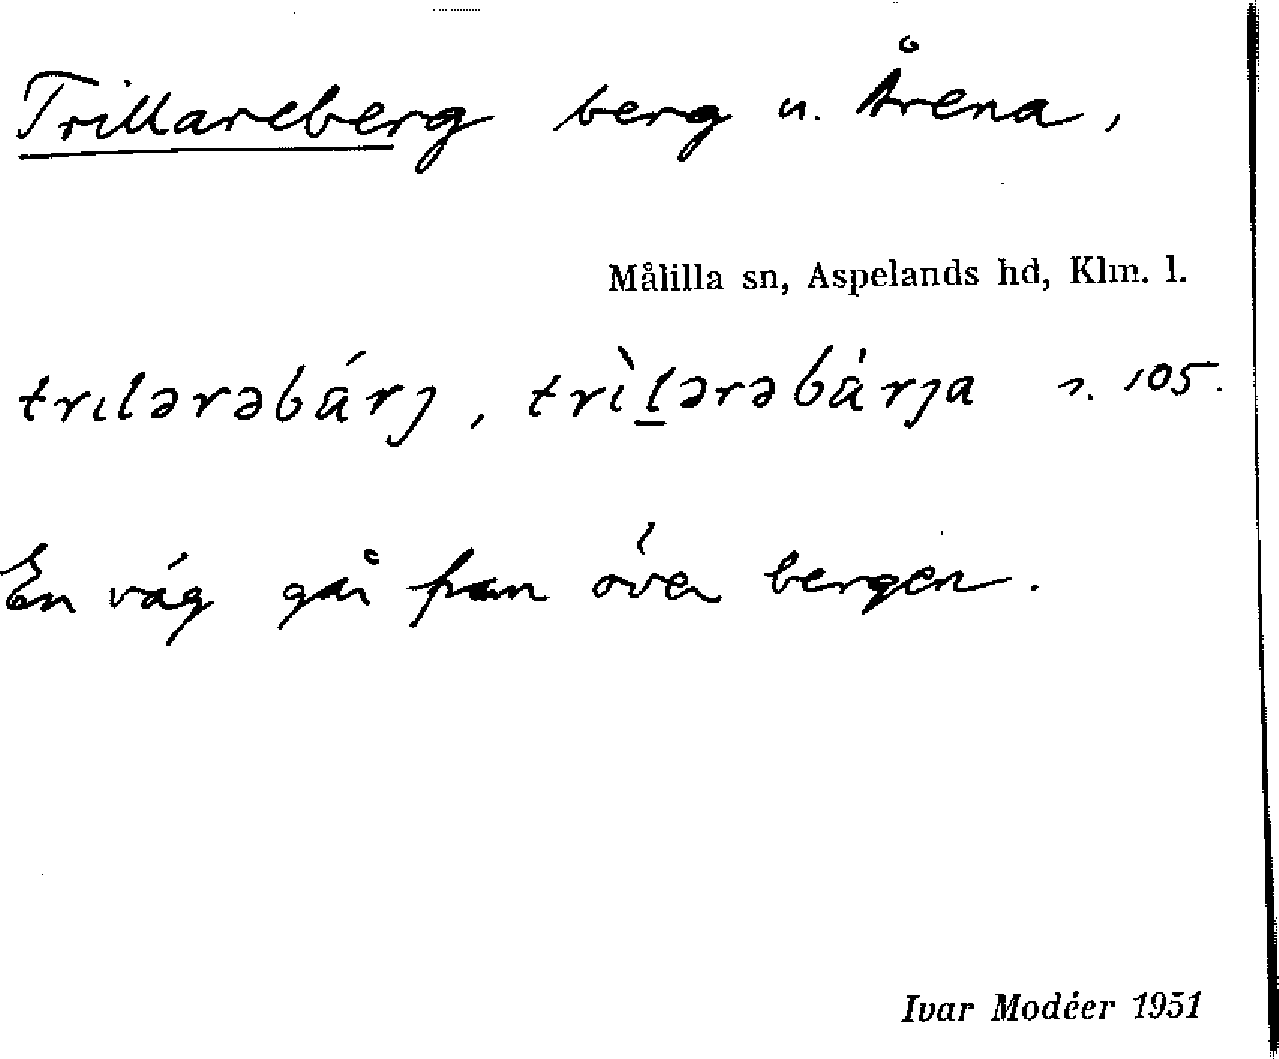 Trillareberg berg u. Årena,
Målilla sn, Aspelands hd, Klm. l.
trılərəbárȷ, trìlərəbàrȷa s. 105.
En väg går fram över bergen.
Ivar Modéer 1951